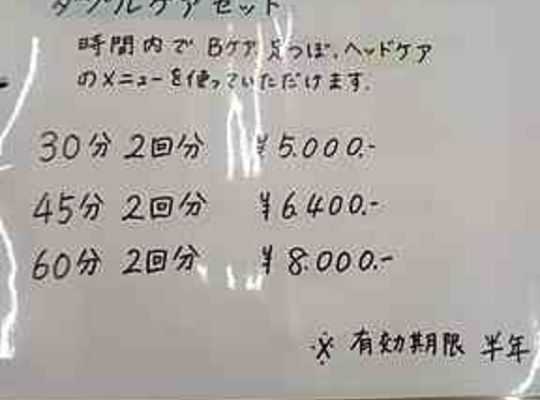 ダブルケアセット
時間内でBケア、足つぼ、ヘッドケア
のメニューを使っていただけます。
30分 2回分 ¥5.000.-
45分 2回分 ¥6.400.-
60分 2回分 ¥8.000.-
※ 有効期限 半年